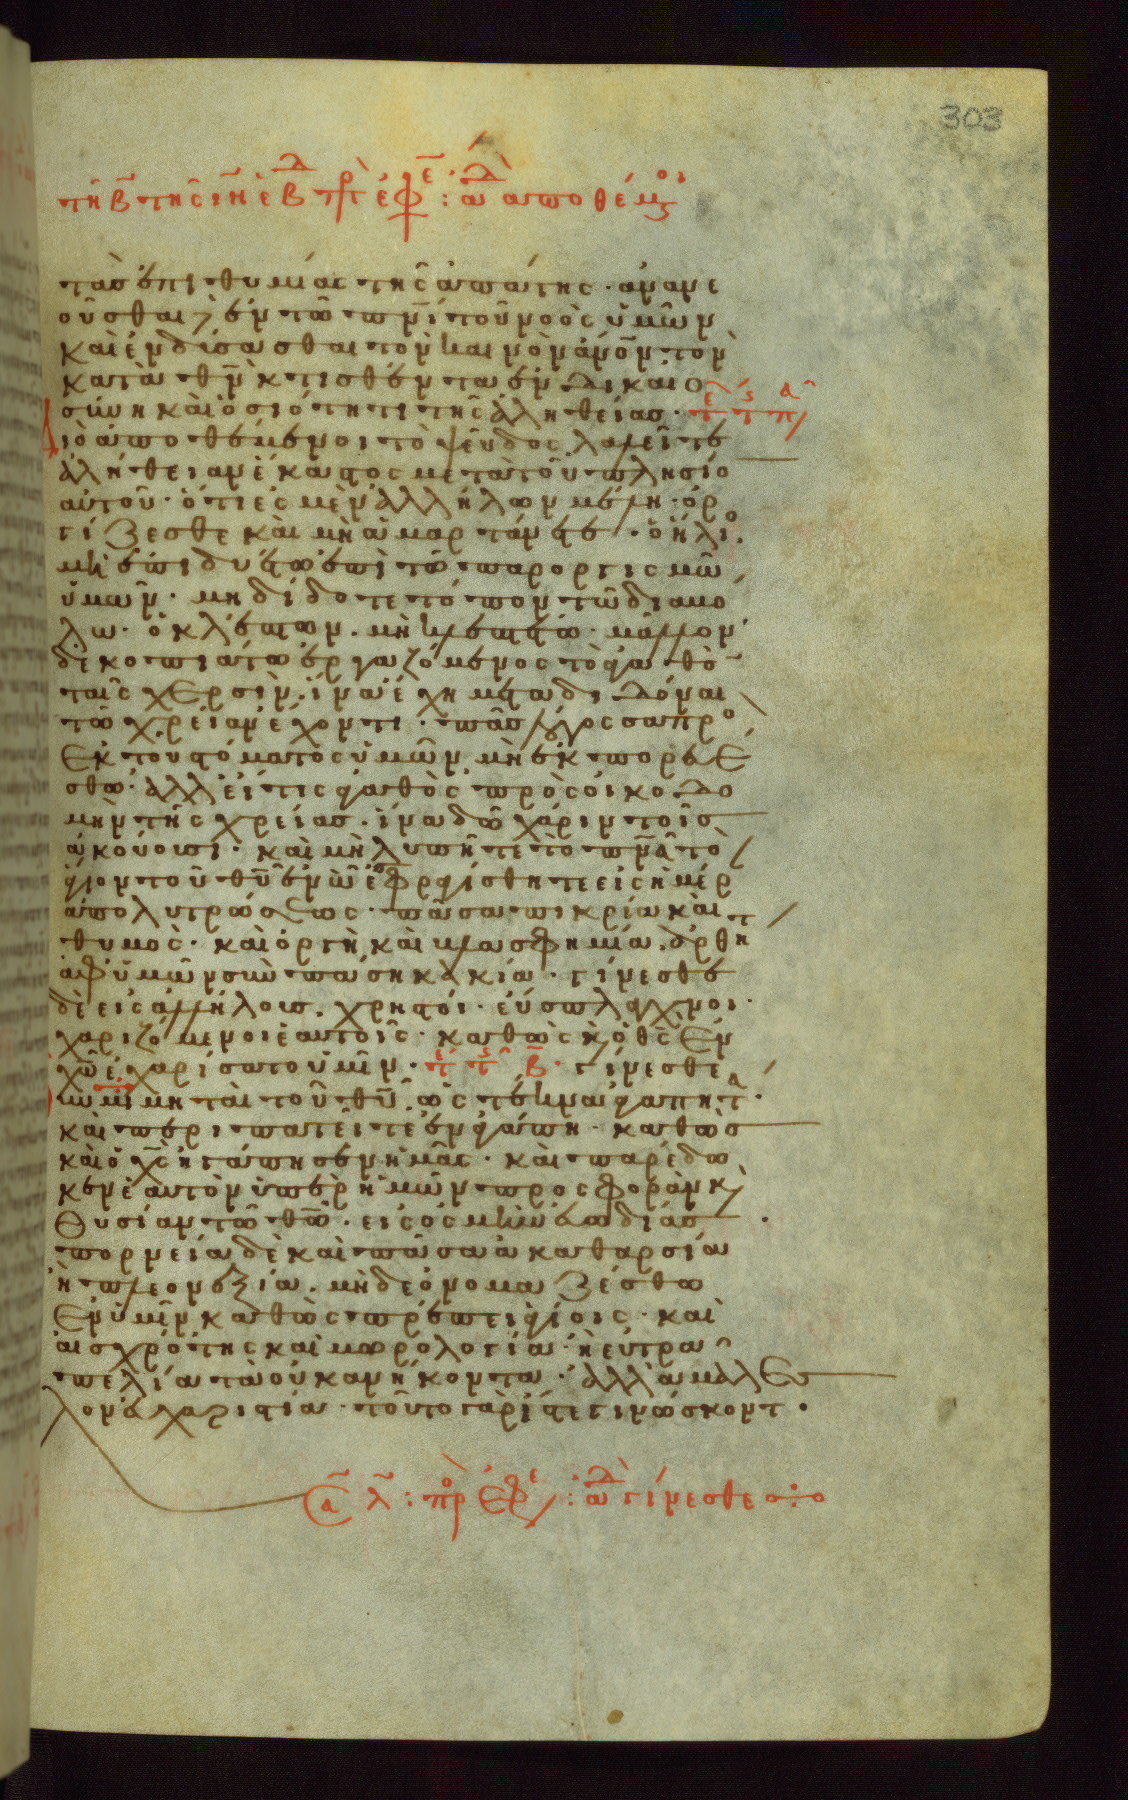 303
τῆ β τῆς ιη ἑβδ πρ ἐφε : ἀδ ἀποθέμενοι
τὰσ ἐπιθυμίας τῆς ἀπάτης · ἀνανε
οῦσθαι δὲ τῶ πνι τοῦ νοὸς ὑμῶν
καὶ ἐνδύσασθαι τὸν καινὸν ἄνον τὸν
κατὰ θν κτισθέντα ἐν δικαιο
σύνη καὶ ὁσιότητι τῆς ἀληθείασ ·
διὸ ἀποθέμενοι τὸ ψεῦδος λαλεῖτε
ἀλήθειαν ἕκαστος μετὰ τοῦ πλησίο
αὐτοῦ · ὅτι ἐσμὲν ἀλλήλων μέλη · ὀρ
γίζεσθε καὶ μὴ ἁμαρτάνετε · ὁ ἥλιο
μὴ ἐπιδυέτω ἐπὶ τῶ παροργισμῶ
ὑμῶν · μὴ δίδοτε τόπον τῶ διαβό
λω · ὁ κλέπτων · μὴ κλεπτέτω · μᾶλλον
δὲ κοπιάτω ἐργαζόμενος τὸ ἀγαθὸ
ταῖς χερσὶν · ἵνα ἔχη μεταδιδόναι
τῶ χρείαν ἔχοντι · πᾶσ λόγος σαπρο
ἐκ τοῦ στόματος ὑμῶν μὴ ἐκπορευέ
σθω · ἀλλ εἴ τις ἀγαθὸς πρὸς οἰκοδο
μὴν τῆς χρείασ · ἵνα δῶ χάριν τοῖσ
ἀκούουσι · καὶ μὴ λυπῆτε τὸ πνα τὸ
ἅγιον τοῦ θυ ἐν ὧ ἐσφραγίσθητε εἰς ἡμέρ
ἀπολυτρώσεως · πᾶσα πικρία καὶ
θυμὸς · καὶ ὀργὴ καὶ βλασφημία · ἀρθή
ἀφ ὑμῶν σὺν πάση κακία · γίνεσθε
δὲ εἰς ἀλλήλουσ · χρηστοί · εὔσπλαγχνοι ·
χαριζόμενοι ἑαυτοῖς · καθὼς καὶ ὁ θς ἐν
χῶ ἐχαρίσατο ὑμῖν · γίνεσθε
μιμηταὶ τοῦ θυ ὡς τέκνα ἀγαπητ ·
καὶ περιπατεῖτε ἐν ἀγάπη · καθὼσ
καὶ ὁ χς ἠγάπησεν ἡμᾶς · καὶ παρέδω
κεν ἑαυτὸν ὑπὲρ ἡμῶν προσφορὰν καὶ
θυσίαν τῶ θῶ · εἰς ὀσμὴν εὐωδίασ ·
πορνεία δὲ καὶ πᾶσα ἀκαθαρσία
ἢ πλεονεξία · μὴ δὲ ὀνομαζέσθω
ἐν ὑμῖν καθὼς πρέπει ἁγίοις · καὶ
αἰσχρότης καὶ μωρολογία ἢ εὐτρα
πελία τὰ οὐκ ἀνήκοντα · ἀλλὰ μᾶλ
λον εὐχαριστία · τοῦτο γὰρ ἴστε γινώσκοντ ·
α λ : πρ ἐφε : ἀδ γίνεσθε